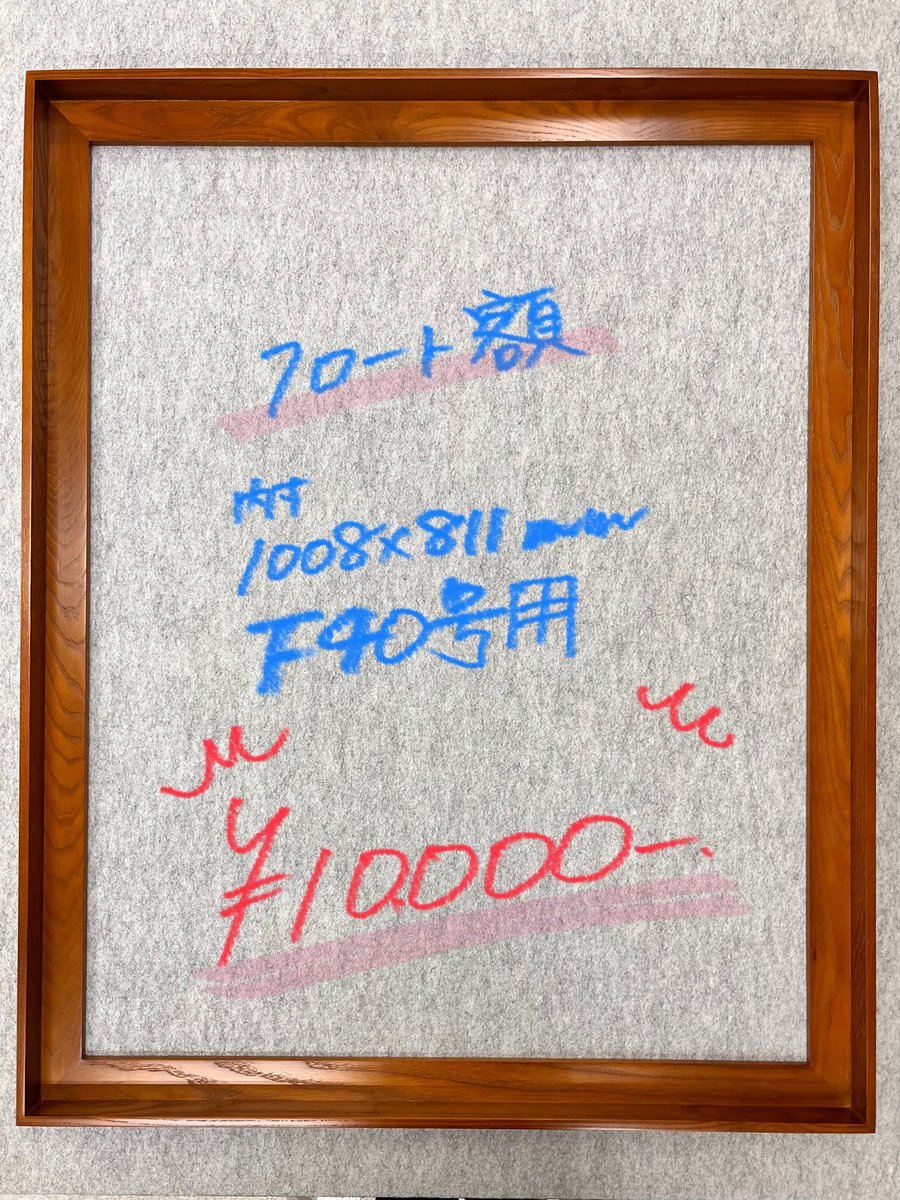 フロート額
内寸
1008×811mm
F40号用
¥10,000-.